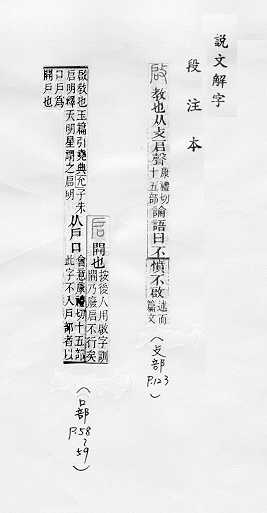 説文解字
段注本
啟 教也从攴启聲康禮切十五部論語曰不憤不啟述而篇文（攴部 P.123）
启 開也按後人用啟字訓開乃廢启不行矣
啟教也玉篇引堯典允子朱启明釋天明星謂之启明从戶口會意康禮切十五部此字不入戶部者以
口戶為開戶也
（口部 P.58~59）